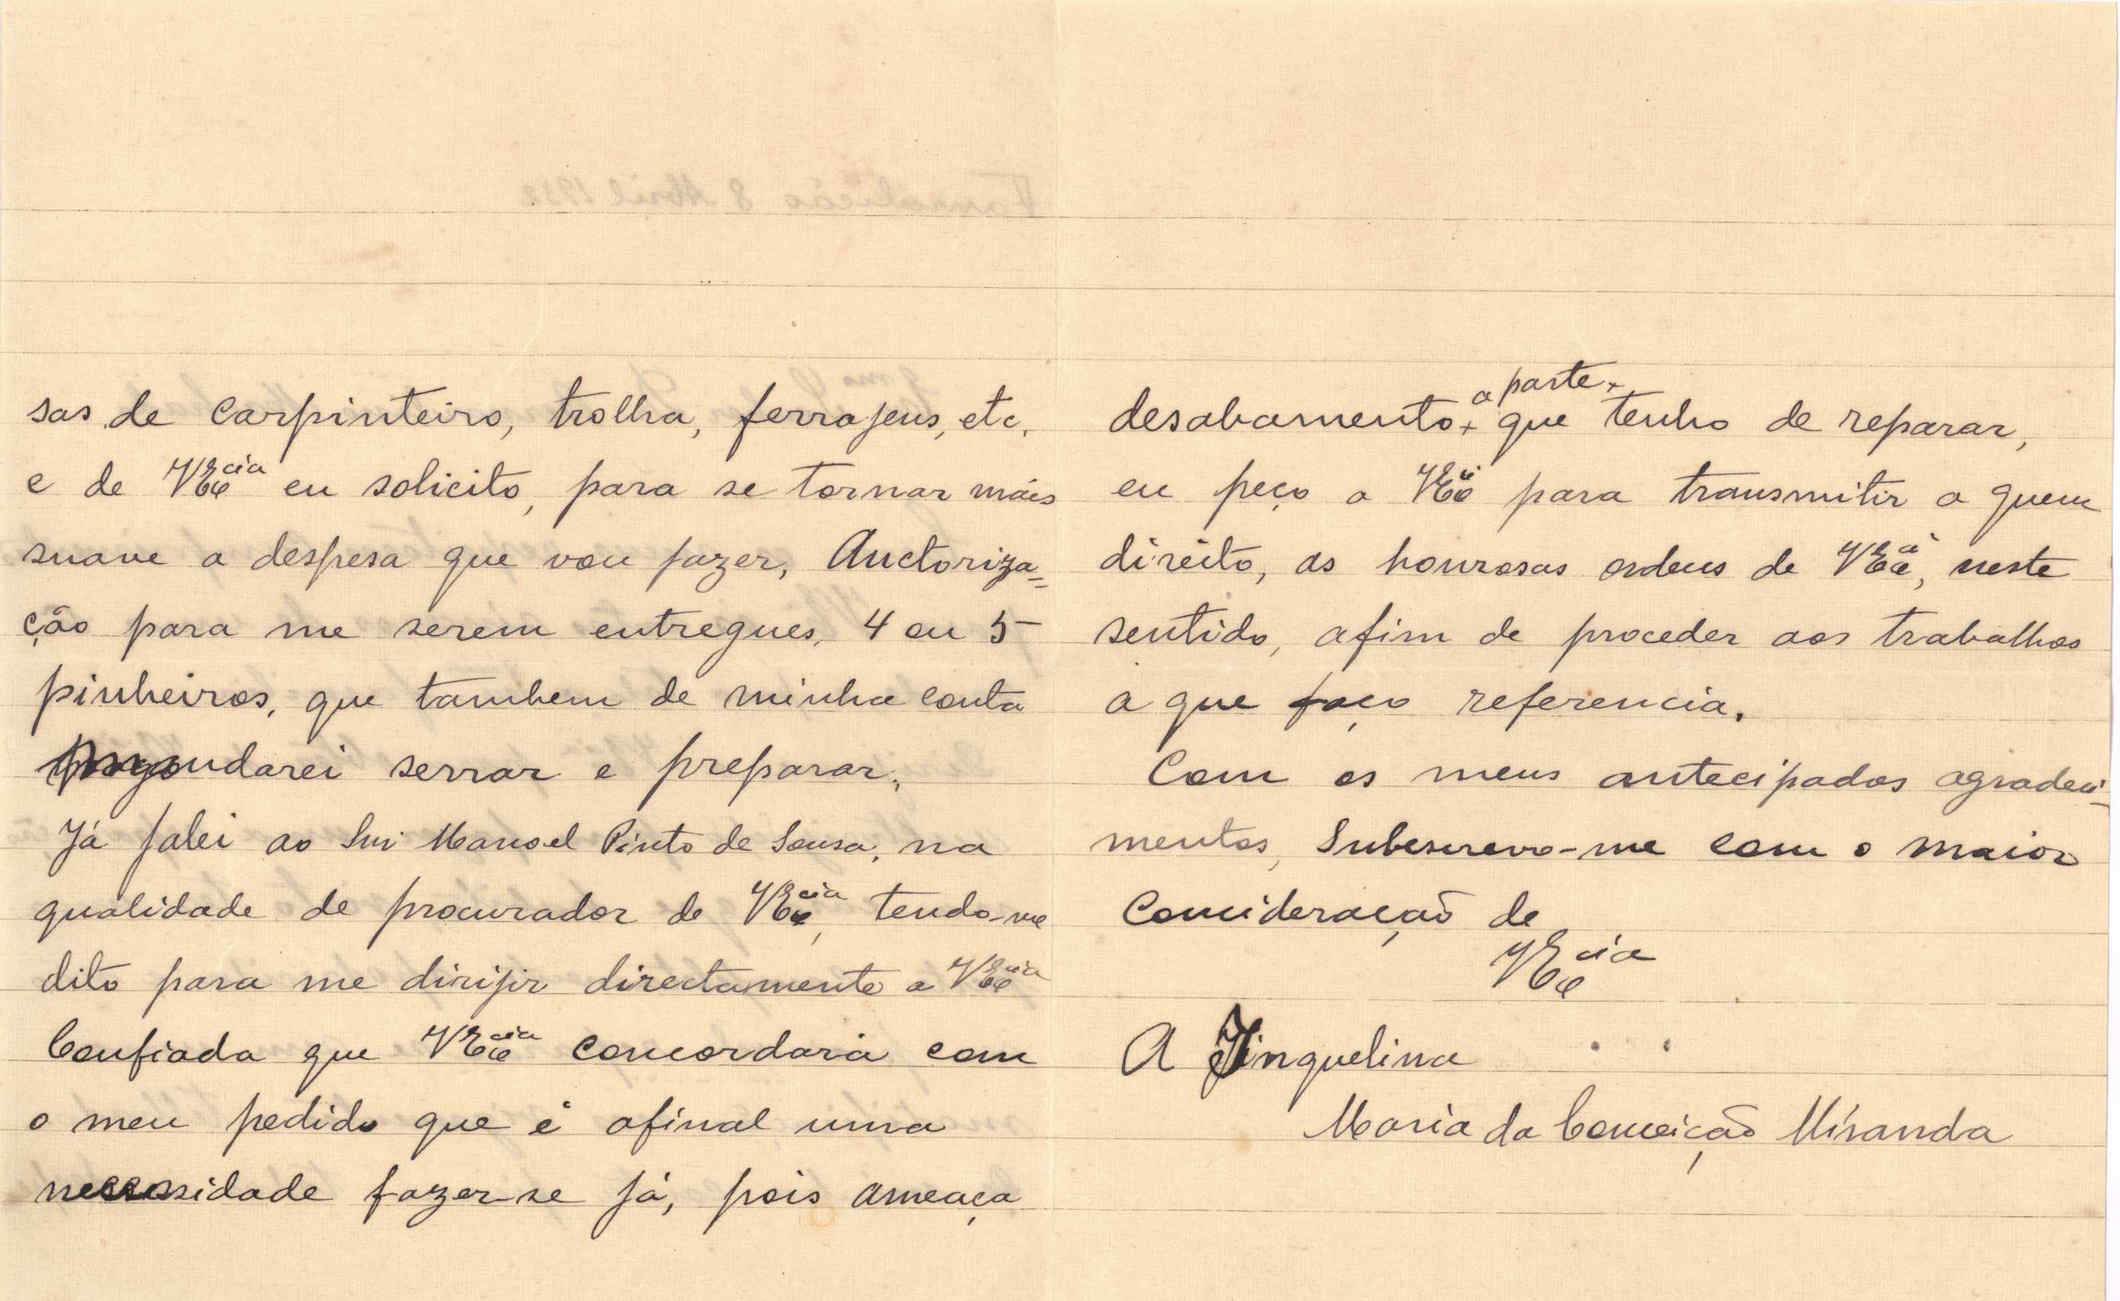 sas de carpinteiro, trolha, ferrajens, etc.
e de VExcia eu solicito, para se tornar máis
suave a despesa que vou fazer, Auctoriza=
ção para me serem entregues, 4 ou 5
pinheiros, que tambem de minha conta
mandarei serrar e preparar.
Já falei ao Snr Manoel Pinto de Sousa, na
qualidade de procurador de VExcia, tendo-me
dito para me dirijir directamente a VExcia
Confiada que VExcia concordará com
o meu pedido que é afinal uma
necessidade fazer-se já, pois ameaça
desabamento + a parte + que tenho de reparar,
eu peço a VExciª para transmitir a quem
direito, as honrosas ordens de VExciª, neste
sentido, afim de proceder aos trabalhos
a que faço referencia.
Com os meus antecipados agradeci-
mentos, Subescrevo-me com o maior
Concideração de
VExcia
A Inquelina
Maria da Conceição Miranda